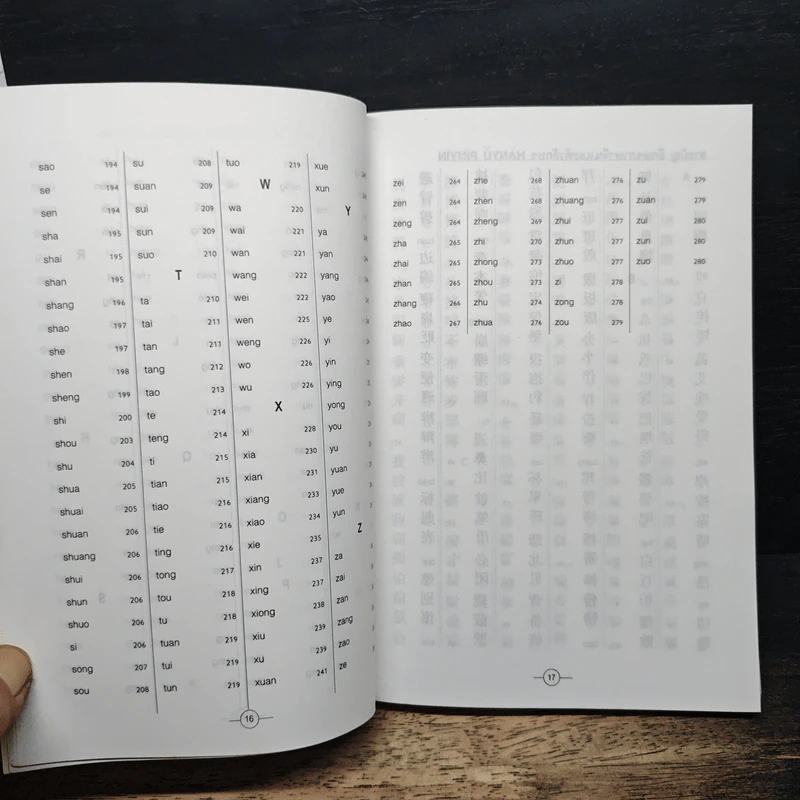 sao 194
se 194
sen 194
sha 195
shai 195
shan 195
shang 196
shao 197
she 197
shen 198
sheng 199
shi 200
shou 203
shu 204
shua 205
shuai 205
shuan 206
shuang 206
shui 206
shun 206
shuo 206
si 206
song 207
sou 208
su 208
suan 209
sui 209
sun 209
suo 209
T
ta 210
tai 211
tan 211
tang 212
tao 213
te 214
teng 214
ti 215
tian 215
tiao 216
tie 216
ting 216
tong 217
tou 218
tu 218
tuan 219
tui 219
tun 219
tuo 219
W
wa 220
wai 221
wan 221
wang 222
wei 222
wen 225
weng 226
wo 226
wu 226
X
xi 228
xia 230
xian 231
xiang 233
xiao 234
xie 235
xin 237
xing 237
xiong 238
xiu 239
xu 239
xuan 241
xue
xun
Y
ya
yan
yang
yao
ye
yi
yin
ying
yong
you
yu
yuan
yue
yun
Z
za
zai
zan
zang
zao
ze
16
zei 264
zen 264
zeng 264
zha 265
zhai 265
zhan 265
zhang 266
zhao 267
zhe 268
zhen 268
zheng 269
zhi 270
zhong 273
zhou 273
zhu 274
zhua 276
zhuan 276
zhuang 276
zhui 277
zhun 277
zhuo 277
zi 278
zong 278
zou 279
zu 279
zuan 279
zui 280
zun 280
zuo 280
17